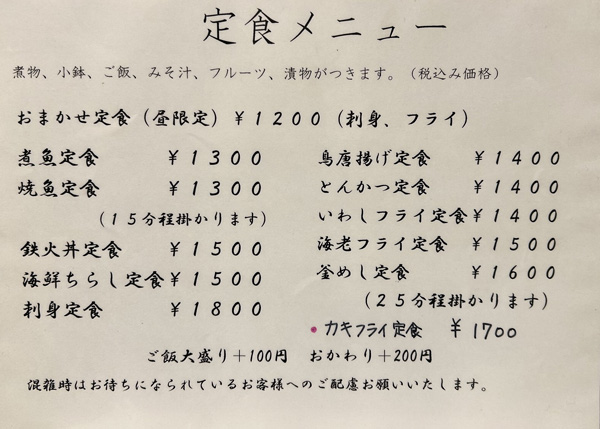 定食メニュー
煮物、小鉢、ご飯、みそ汁、フルーツ、漬物がつきます。（税込み価格）
おまかせ定食（昼限定）￥１２００（刺身、フライ）
煮魚定食　￥１３００
焼魚定食　￥１３００
（１５分程掛かります）
鉄火丼定食　￥１５００
海鮮ちらし定食￥１５００
刺身定食　￥１８００
鳥唐揚げ定食　￥１４００
とんかつ定食　￥１４００
いわしフライ定食￥１４００
海老フライ定食　￥１５００
釜めし定食　￥１６００
（２５分程掛かります）
• カキフライ定食　￥1700
ご飯大盛り＋100円　おかわり＋200円
混雑時はお待ちになられているお客様へのご配慮お願いいたします。